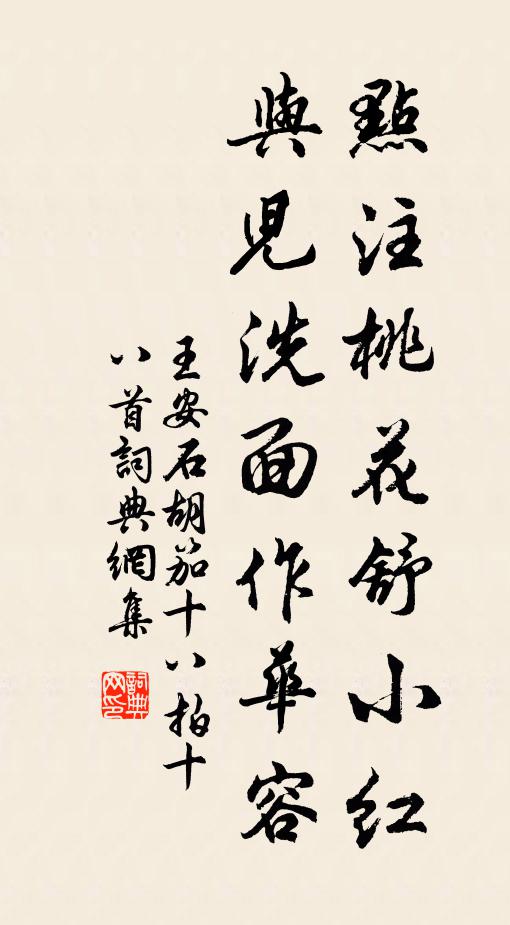 點注桃花舒小紅
與兒洗面作華容
王安石胡笳十八拍十
八首詞典網集
詞典
网印